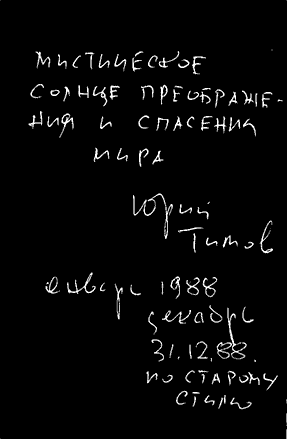 МИСТИЧЕСКОЕ
СОЛНЦЕ ПРЕОБРАЖЕ-
НИЯ И СПАСЕНИЯ
МИРА
Юрий
Титов
январь 1988
декабрь
31.12.88.
ПО СТАРОМУ
СТИЛЮ